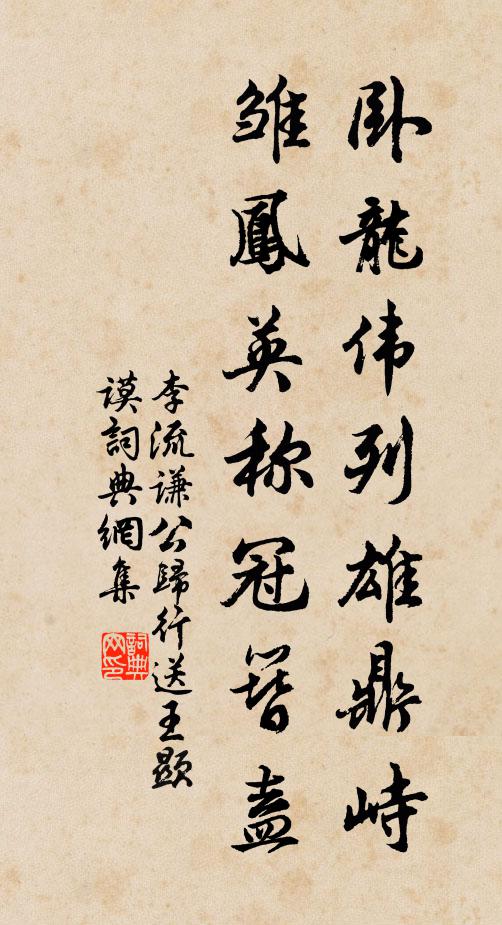 卧龍伟列雄鼎峙
雏鳳英称冠簪盍
李流谦公歸行送王顯
谟詞典網集
詞典网印